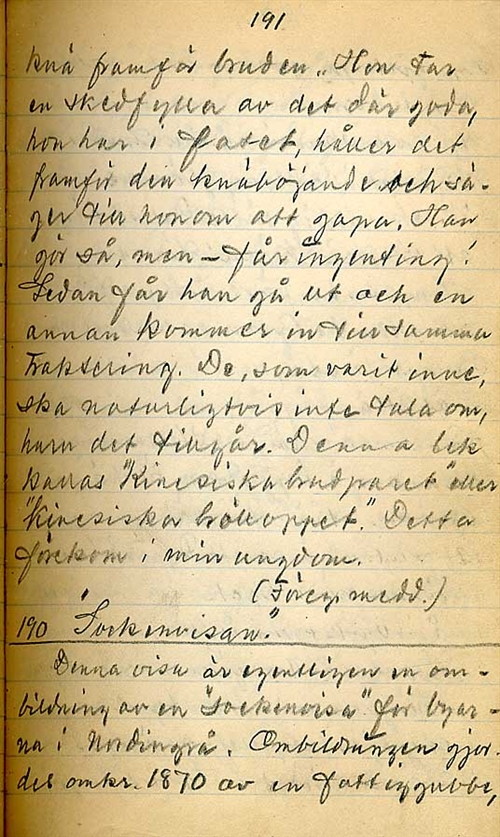 191
knä framför bruden. Hon tar
en skedfylla av det där goda,
hon har i fatet, håller det
framför den knäböjande och sä-
ger till honom att gapa. Han
gör så, men – får ingenting!
Sedan får han gå ut och en
annan kommer in till samma
traktering. De, som varit inne,
ska naturligtvis inte tala om,
huru det tillgår. Denna lek
kallas "Kinesiska brudparet" eller
"Kinesiska brölloppet." Detta
förekom i min ungdom.
(Föreg. medd.)
190 "Sockenvisan."
Denna visa är egentligen en om-
bildning av en "sockenvisa" för byar-
na i Nordingrå. Ombildningen gjor-
des omkr. 1870 av en fattiggubbe,